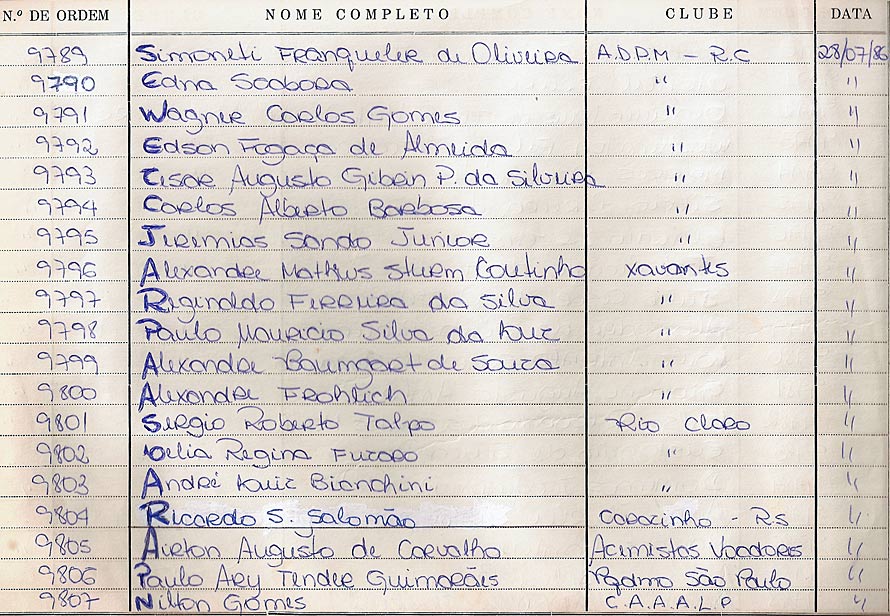 N.º DE ORDEM NOME COMPLETO CLUBE DATA
9789 Simoneti Franqueler de Oliveira A.D.P.M - R.C 28/07/86
9790 Edna Scobosa " "
9791 Wagner Carlos Gomes " "
9792 Edson Fogaça de Almeida " "
9793 Cesar Augusto P. da Silveira " "
9794 Carlos Alberto Barbosa " "
9795 Jeremias Sando Junior " "
9796 Alexandre Matheus Sturm Coutinho Xavantes "
9797 Reginaldo Ferreira da Silva " "
9798 Paulo Mauricio Silva da Luiz " "
9799 Alexandre Baumgart de Souza " "
9800 Alexandre Frohlich " "
9801 Sergio Roberto Talpo Rio Claro "
9802 Celia Regina Furoro " "
9803 André Luiz Bianchini " "
9804 Ricardo S. Salomão Caracinho - RS "
9805 Airton Augusto de Carvalho Acemistas Voadores "
9806 Paulo Ary Tender Guimarães São Paulo "
9807 Nilton Gomes C.A.A.A.L.P "